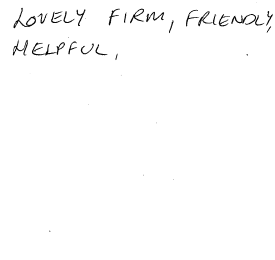 LOVELY FIRM, FRIENDLY,
HELPFUL,